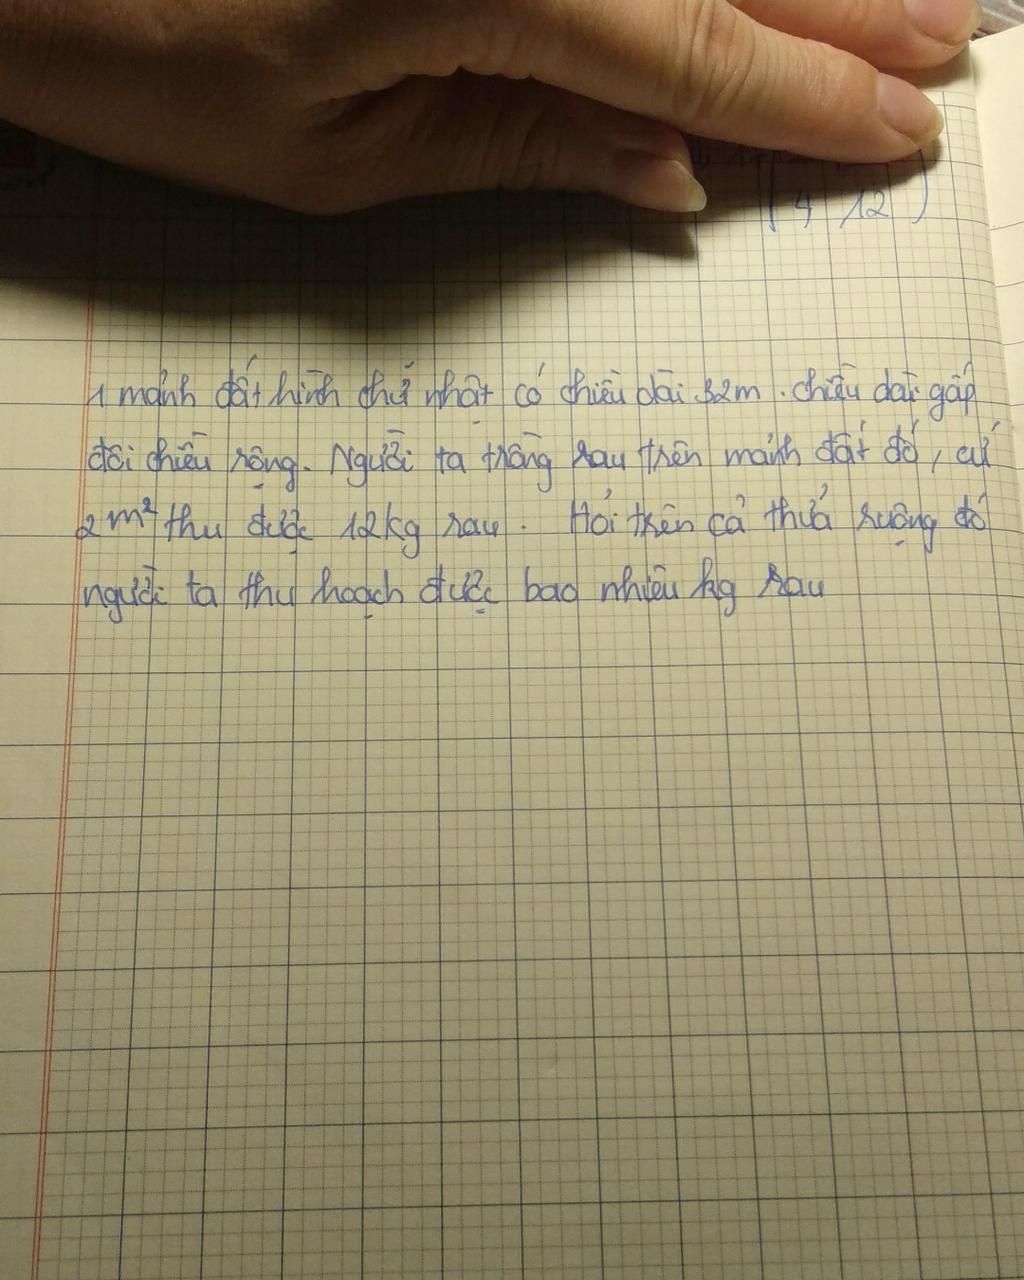 ( 4 12 )
1 mảnh đất hình chữ nhật có chiều dài 32m. chiều dài gấp
đôi chiều rộng. Người ta trồng rau trên mảnh đất đó, cứ
2 m² thu được 12kg rau. Hỏi trên cả thửa ruộng đó
người ta thu hoạch được bao nhiêu kg rau